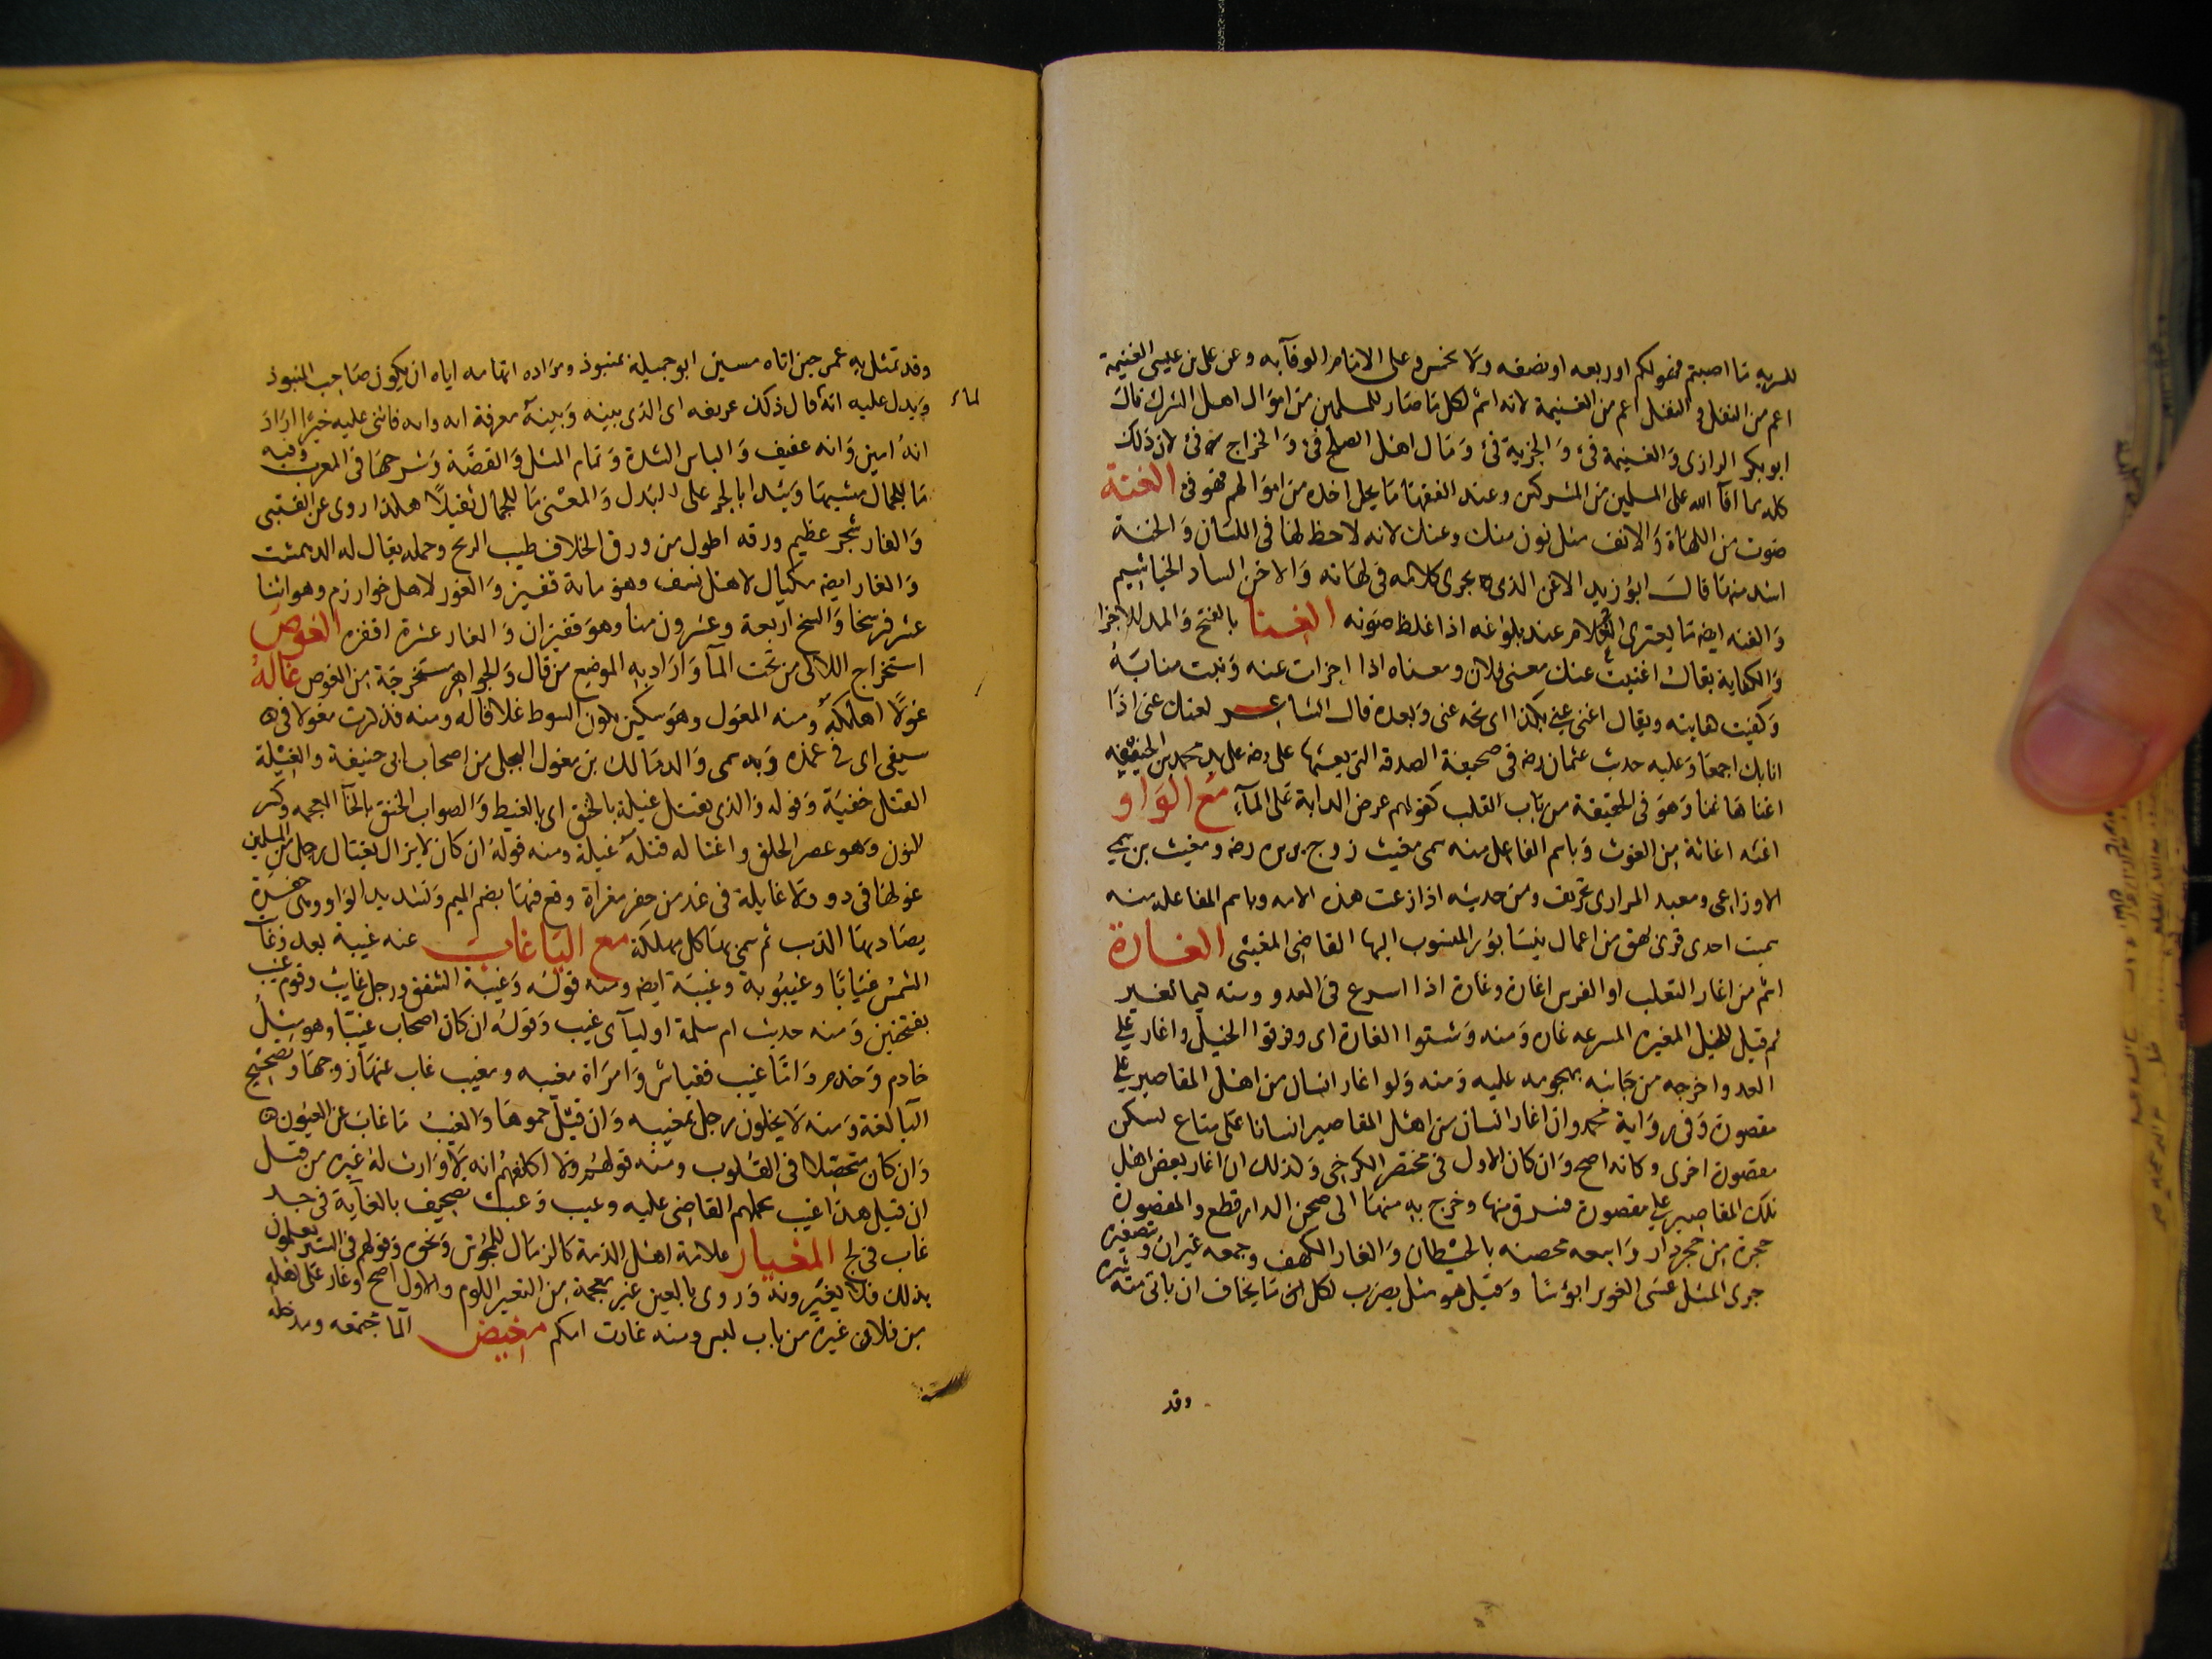 للسرية ما اصبتم فهو لكم او ربعه او نصفه ولا يخمس وعلى الامام الوفآ به وعن على بن عيسى الغنيمة
اعم من النفل و النفل اعم من الغنيمة لانه اسم لكل ما صار للمسلمين من اموال اهل الشرك قال
ابو بكر الرازى وَالغنيمة فئ وَالجزية فئ وَمال اهل الصلح فئ وَالخراج فئ لان ذلك
كله مما افآ الله على المسلمين من المشركين وعند الفقها ما يحل اخذه من اموالهم فهو فئ الغنة
صَوت من اللهاة وَالانف مثل نون منك وعنك لانه لا حظ لها فى اللسَان وَالخنة
اشد منها قالَ ابو زيد الاغن الذى يجرى كلامه فى لهاته وَالاخن الساد الخياشيم
وَالغنه ايضه ما يعترى الغلام عند بلوغه اذا غلظ صَوته الغنا بالفتح وَالمد الاجزا
وَالكفاية يقال اغنيت عنك مغنى فلان ومعناه اذا اجزات عنه وَنبت منابَهُ
وَكفيت كفايته ويقال اغنى عنى كذا اى نحه عنى وَبعده قال الشاعر لعنك عنى اذا
انابك اجمعا وَعليه حديث عثمان رضه فى صحيفة الصدقه التى بعثها على رضه على يد محمد بن الحنفيه
اغنها عنا وَهوَ فى الحقيقة من باب القلب كقولهم عرض الدابة على المآء مَع الوَاو
اغثه اغاثة من الغوث وَباسم الفاعل منه سمى مغيث زوج بريره رضه ومغيث بن سمى
الاوزاعى ومعبد المرادى تحريف ومن حديثه اذا زعت هذه الامه وباسم المفاعله منه
سميت احدى قرى بهق من اعمال نيسَابور المنسوب اليها القاضى المغيثى الغارة
اسم من اغار الثعلب او الفرس اغارة وغارة اذا اسرع فى العدو ومنه كيما نغير
ثم قيل للخيل المغيره المسرعه غاره وَمنه وَشنوا الغارة اى وفرقوا الخيل واغار على
العدو اخرجه من جَانبه بهجومه عليه وَمنه وَلو اغار انسان من اهل المقاصير على
مقصورة وَفى رِوَاية محمد وان اغار انسان من اهل المقاصير انسانا على متاع لسكن
مقصورة اخرى وكانه اصح وَان كان الاول فى مختصر الكرخى وَكذلك ان اغار بعض اهل
تلك المقاصير على مقصورة فسرق منها وخرج به منها الى صحن الدار قطع والمقصورة
حجرة من حجر دار وَاسعه محصنه بالحيطان وَالغار الكهف وجمعه غيران وَبتصغيره
جرى المثل عسَى الغوير ابؤسَا وَقيل هو مثل يضرَب لكل ما يخاف ان ياتى منه شره
وقد
وقد تمثل به عمر حين اتاه سنين ابو جميلة بمنبوذ ومرَاده اتهامه اياه ان يكون صَاحب المنبوذ
وَيدل عليه انه قال ذلك عريفه اى الذى بينه وَبينه معرفة انه وانه فاثنى عليه خيرا ارَاد
انهُ امين وَانه عفيف وَالباس الشدة وَتمام المثل وَالقصَّة وَشرحها فى المعرب وفيه
مَا للجمال مشيها وَئيدا بالجر على البَدل وَالمعنى مَا للجمال ثقيلًا هكذا روى عن القتبى
وَالغار شجر عظيم ورقه اطول من ورق الخلاف طيب الريح وحمله يقال له الدهمشت
وَالغار ايضه مكيال لاهل نسف وهوَ ماية قفيز وَالغور لاهل خوارزم وهو اثنا
عشر فرسخا وَالسخ اربعة وعشرون منا وهوَ قفيزان وَالغار عشرة اقفزه الغوص
استخراج اللالى من تحت المآ وَارَاد به الموضع من قال وَالجواهر مستخرجَة من الغوص غَالهُ
غولًا اهلكهُ ومنه المغوَل وهوَ سكين يكون السوط غلافا له ومنه فذكرت مغولا فى
سيفى اى فى غمده وَبه سمى وَالد مَالك بن مغول البجلى من اصحاب ابى حنيفة والغِيْلة
القتل خفيَة وَقوله وَالذى يقتل غيلة بالخنق اى بالغيط وَالصواب الخنق بالخآ المعجمه وَكسر
النون وَهو عصر الحلق واغتاله قتلهُ غيلة ومنه قولهُ ان كان لا يزال يغتال رجل من المسلمين
غولها فى دو ولا غايلة فى غد من حفر مغواة وقع فيها بضم الميم وَتشديد الوَاو وهى حفرة
يصَاد بها الذيب ثم سمى بها كل مهلكة مع اليَا غَابَ عنه غيبة بعد وَغابت
الشمس غيَابًا وغيبُوبة وغيبَة ايضه ومنه قولهُ وَغيبة الشفق ورجل غايبُ وقوم غيب
بفتحتين وَمنه حديث ام سلمة اوليآى غيب وَقولهُ ان كان اصحابه غيبَا وهو مثل
خادم وَخدم وَامَّا غيب فقياس وَامرَاة مغيبه ومغيب غاب عنهَا زوجهَا وتصحيح
اليآ لغة وَمنه لا يخلون رجل بمغيبه وَان قيْل حموهَا وَالغيبُ مَا غابَ عن العيُون
وَان كان متحصّلا فى القلوب ومنه قولهُ وَلا اكلفهم انه لاوَارث لهُ غيره من قبل
ان قيل هذا غيب يحملهم القاضى عليه وعيب وَعبك تصحيف بالغآية فى حد
غاب فى لج المغيار علامة اهل الذمة كالزنار للمجوس وَنحوه وَقولهم فى السير يعملون
بذلك فلا يغيّرونه وَروى بالعين غير معجمة من التعير اللوم والاول اصح وغار عَلى اهله
من فلان غيرة من باب لبس ومنه غارت امكم مغيض المآ مجتمعه ومدخله